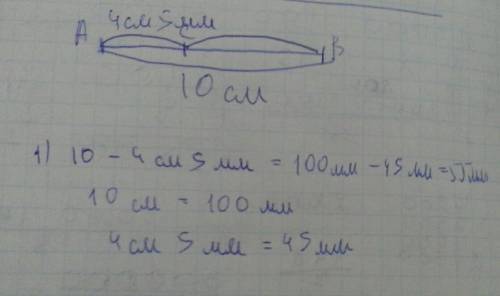 4см 5мм
A B
10 см
1) 10 - 4 см 5 мм = 100мм - 45 мм = 55мм
10 см = 100 мм
4см 5 мм = 45мм